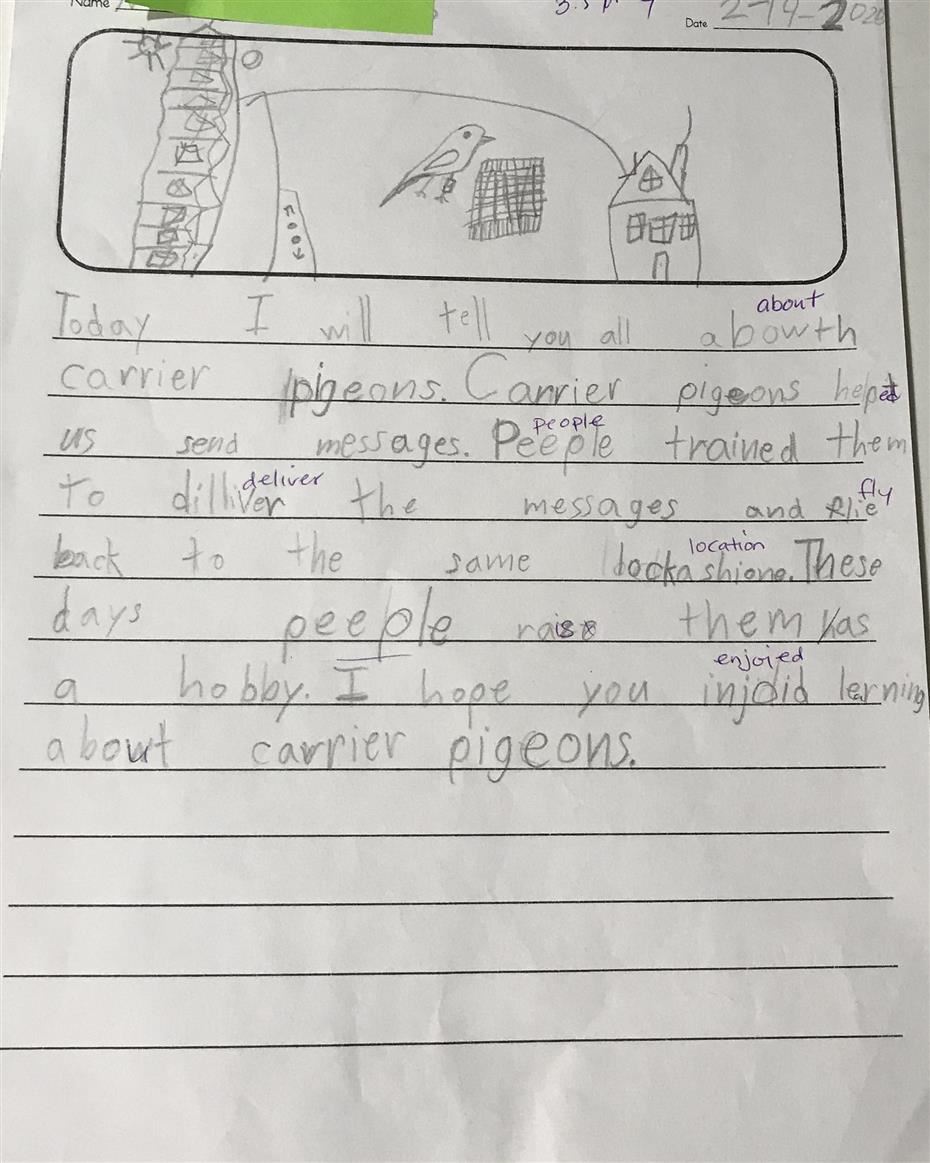 Name
Date 2-14-2020
about
Today I will tell you all abowth
carrier pigeons. Carrier pigeons helped
people
us send messages. Peeple trained them
deliver fly
to dilliver the messages and flie
location
back to the same lockashione. These
days peeple raise them has
enjoied
a hobby. I hope you injoid lerning
about carrier pigeons.